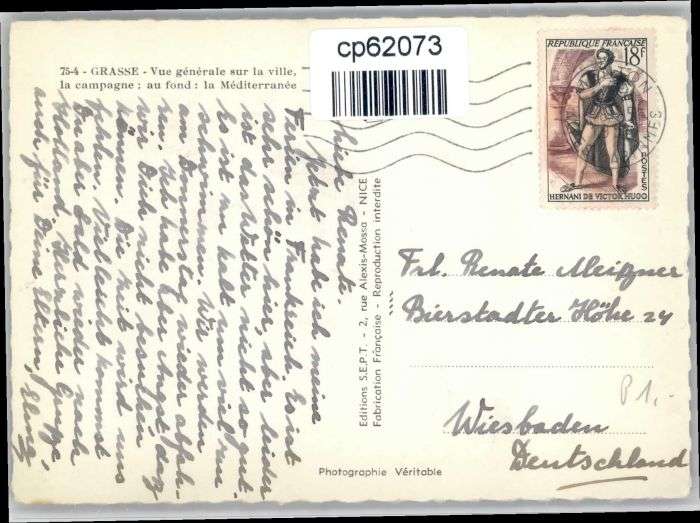 cp62073
75-4 - GRASSE - Vue générale sur la ville,
la campagne ; au fond : la Méditerranée
RÉPUBLIQUE FRANÇAISE
18F
POSTES
HERNANI DE VICTOR HUGO
Liebe Renate.
Jetzt hab ich meine
Ferien in Frankreich. Es ist
sehr schön hier, aber leider
ist das Wetter nicht so gut.
Es ist zu kalt um viel zu
schwimmen. Wir werden
am Donnerstag wieder abfah-
ren. Ich habe Angst daz
wir Dich nicht besuchen
können. Die Zeit wird uns
fehlen. Viel kommst
Du aber bald wieder nach
Holland. Herzliche Grüsze,
auch für Deine Eltern,
Editions S.E.P.T. - 2, rue Alexis-Mossa - NICE
Fabrication Française - Reproduction interdite
Frl. Renate Meißner
Bierstadter Höhe 24
P 1,-
Wiesbaden
Deutschland
Photographie Véritable